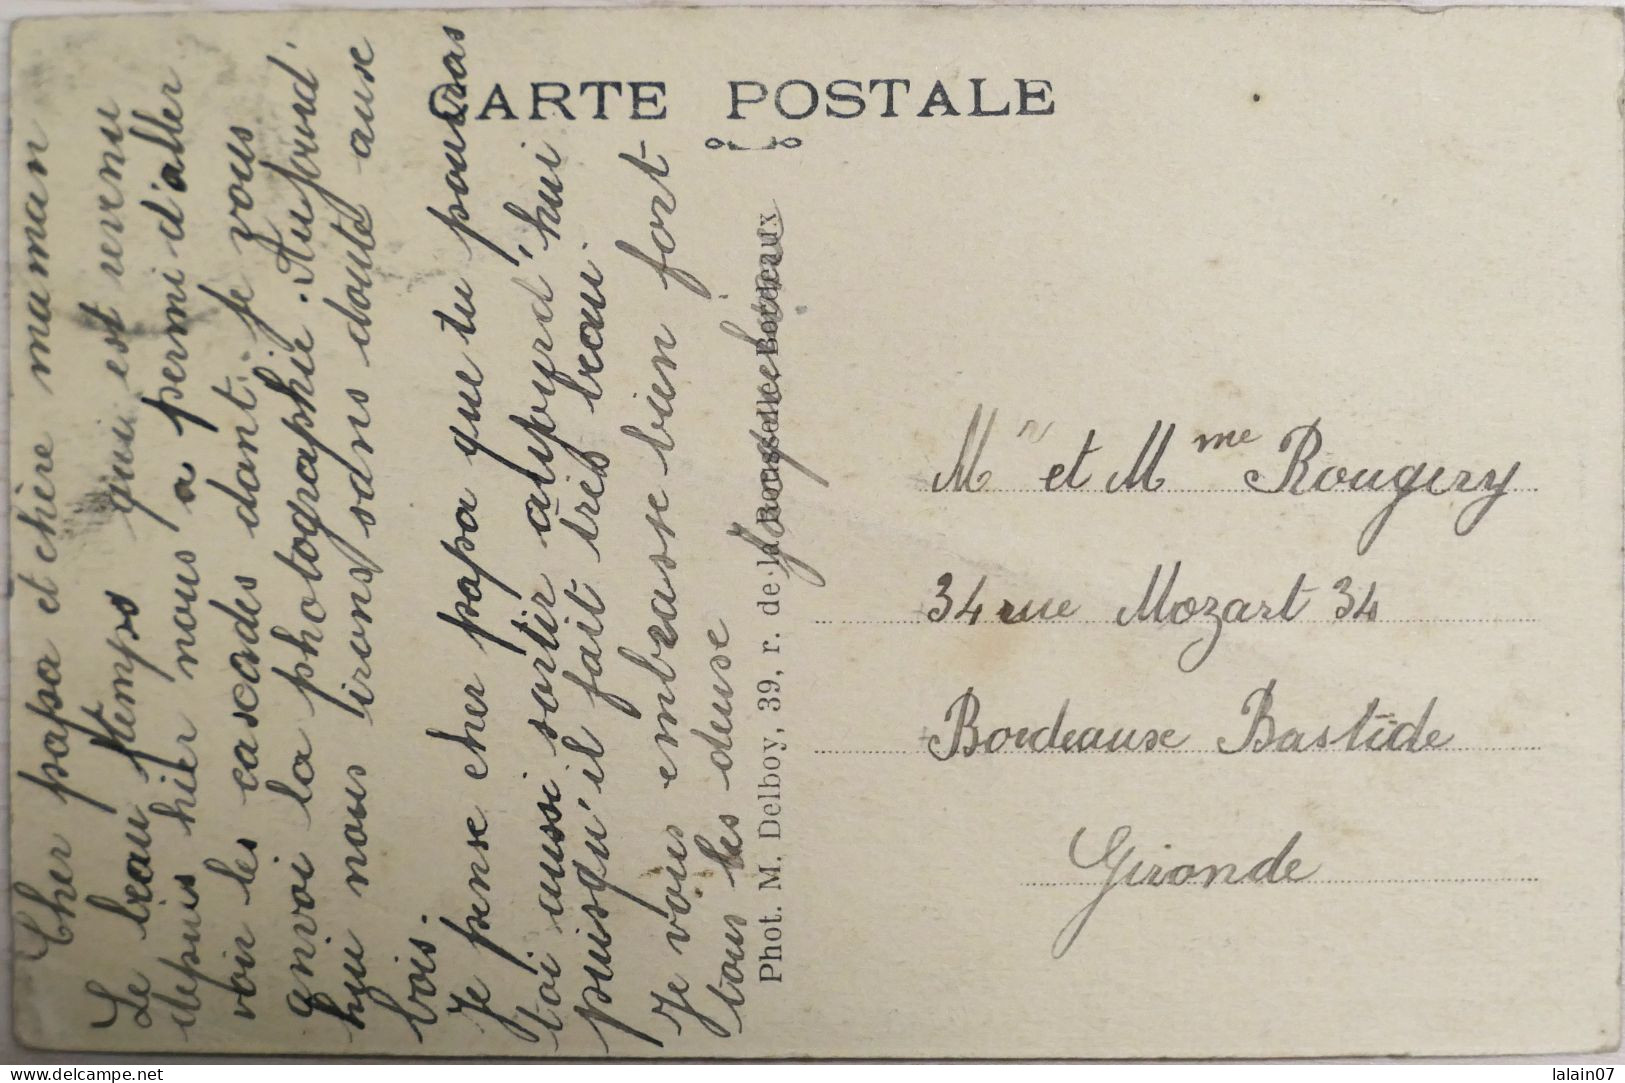 CARTE POSTALE
Cher papa et chère maman
Le beau temps qui est revenu
depuis hier nous a permi d'aller
voir les cascades dant je vous
envoi la photographie. Aujourd'
hui nous irons sans doute aux
bois.
Je pense cher papa que tu pourras
toi aussi sortir aujourd'hui
puisqu'il fait très beau.
Je vous embrasse bien fort
tous les deux
Phot. M. Delboy, 39, r. de la Rousselle Bordeaux
Mr et Mme Rougery
34 rue Mozart 34
Bordeaux Bastide
Gironde
www.delcampe.net
lalain07